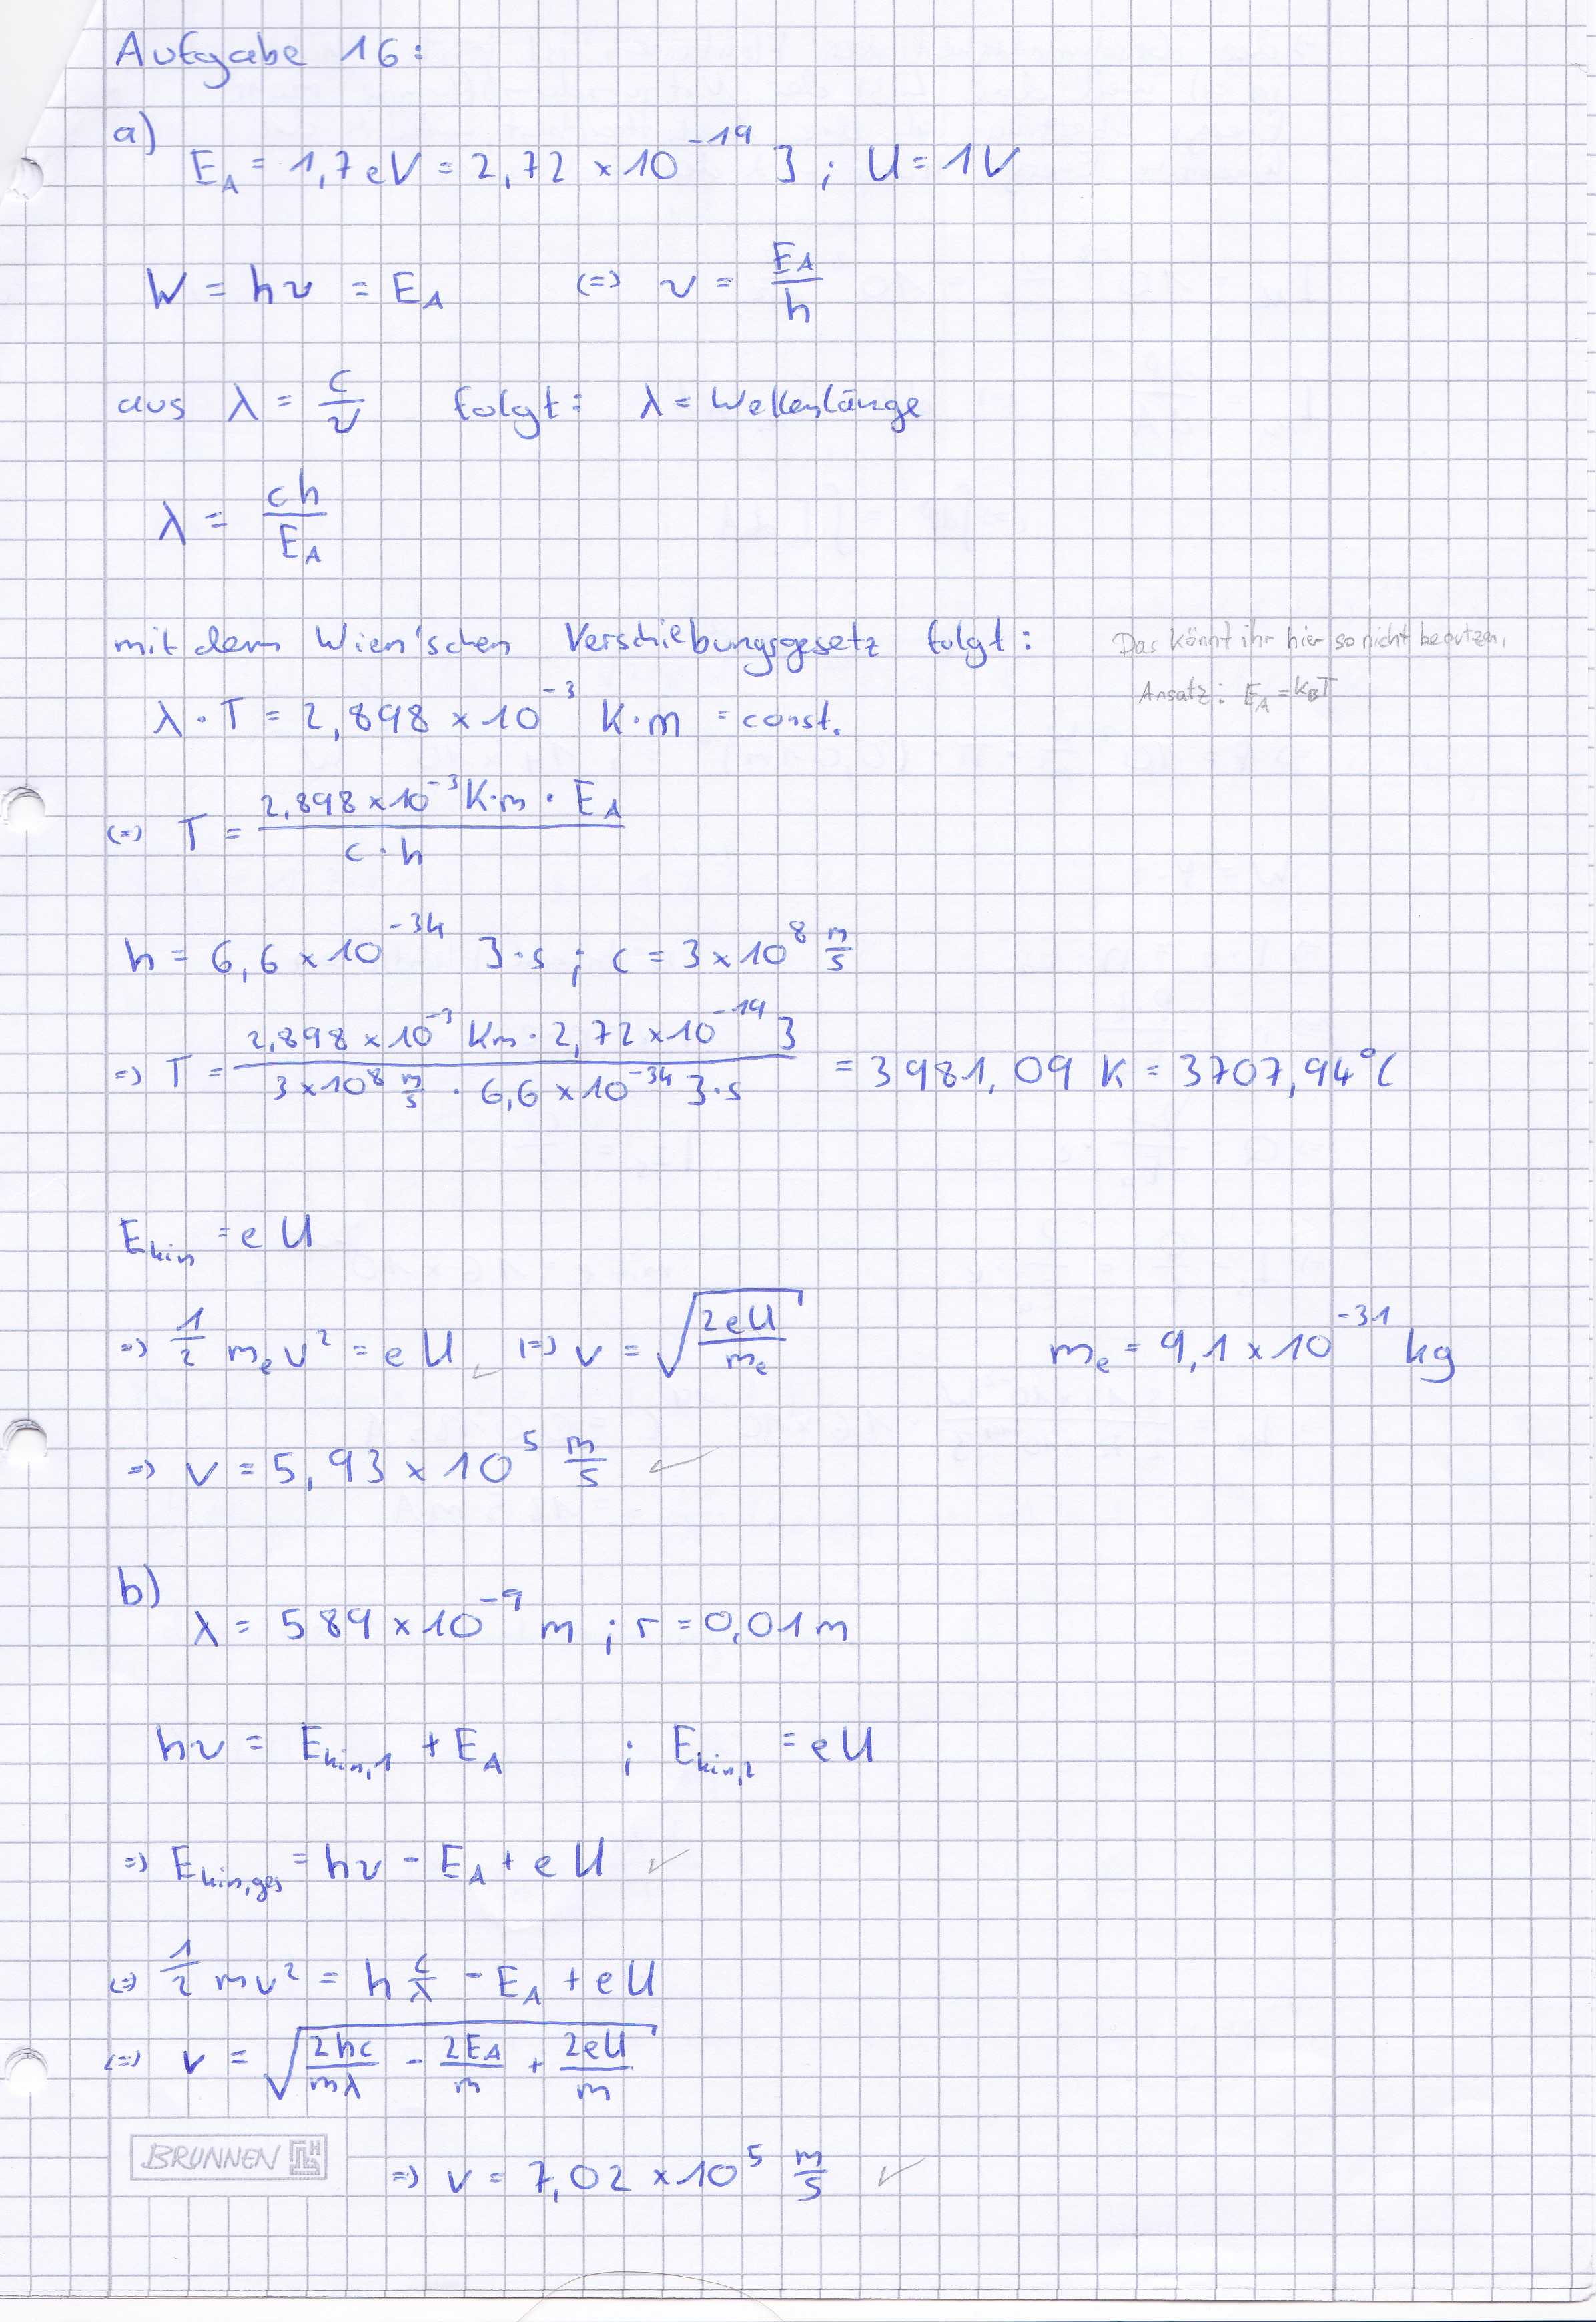 Aufgabe 16:
a)
E_A = 1,7 eV = 2,72 × 10^-19 J ; U = 1V
W = hν = E_A (=) ν = E_A / h
aus λ = c / ν folgt: λ = Wellenlänge
λ = c h / E_A
mit dem Wien'schen Verschiebungsgesetz folgt: Das könnt ihr hier so nicht benutzen,
Ansatz: E_A = k_B T
λ · T = 2,898 × 10^-3 K·m = const.
(=) T = 2,898 × 10^-3 K·m · E_A / c · h
h = 6,6 × 10^-34 J·s ; c = 3 × 10^8 m/s
=) T = 2,898 × 10^-3 Km · 2,72 × 10^-19 J / 3 × 10^8 m/s · 6,6 × 10^-34 J·s = 3981,09 K = 3707,94°C
E_kin = e U
=) 1/2 m_e v^2 = e U (=) v = √(2eU / m_e) m_e = 9,1 × 10^-31 kg
=) v = 5,93 × 10^5 m/s ✓
b)
λ = 589 × 10^-9 m ; r = 0,01 m
hν = E_kin,1 + E_A ; E_kin,2 = eU
=) E_kin,ges = hν - E_A + e U ✓
(=) 1/2 m v^2 = h c/λ - E_A + e U
(=) v = √(2hc / mλ - 2E_A / m + 2eU / m)
BRUNNEN
=) v = 7,02 × 10^5 m/s ✓